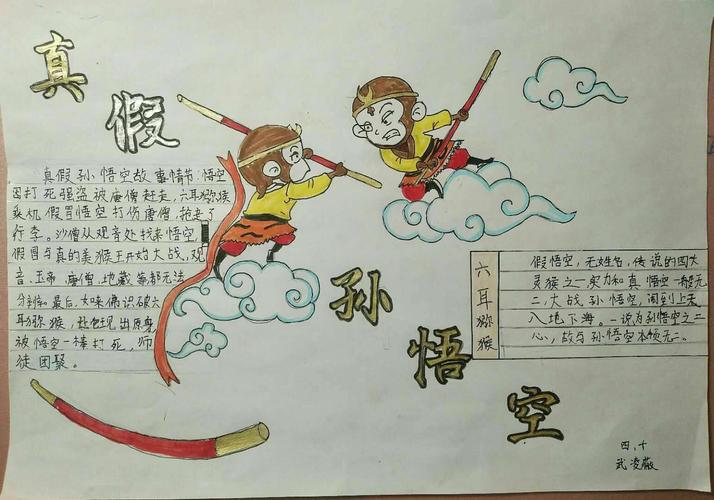 真假
真假孙悟空故事情节:悟空
因打死强盗被唐僧赶走,六耳猕猴
乘机假冒悟空打伤唐僧,抢走了
行李。沙僧从观音处找来悟空,
假冒与真的美猴王开始大战,观
音、玉帝、唐僧、地藏等都无法
分辨。最后如来佛识破六
耳猕猴,出原身
被悟空一棒打死,师
徒团聚。
孙悟空
六耳猕猴
假悟空,无姓名,传说的四大
灵猴之一实力和真悟空一般无
二,大战孙悟空,闹到上天
入地下海。一说为孙悟空之二
心,故与孙悟空本领无二。
四,十
武凌薇